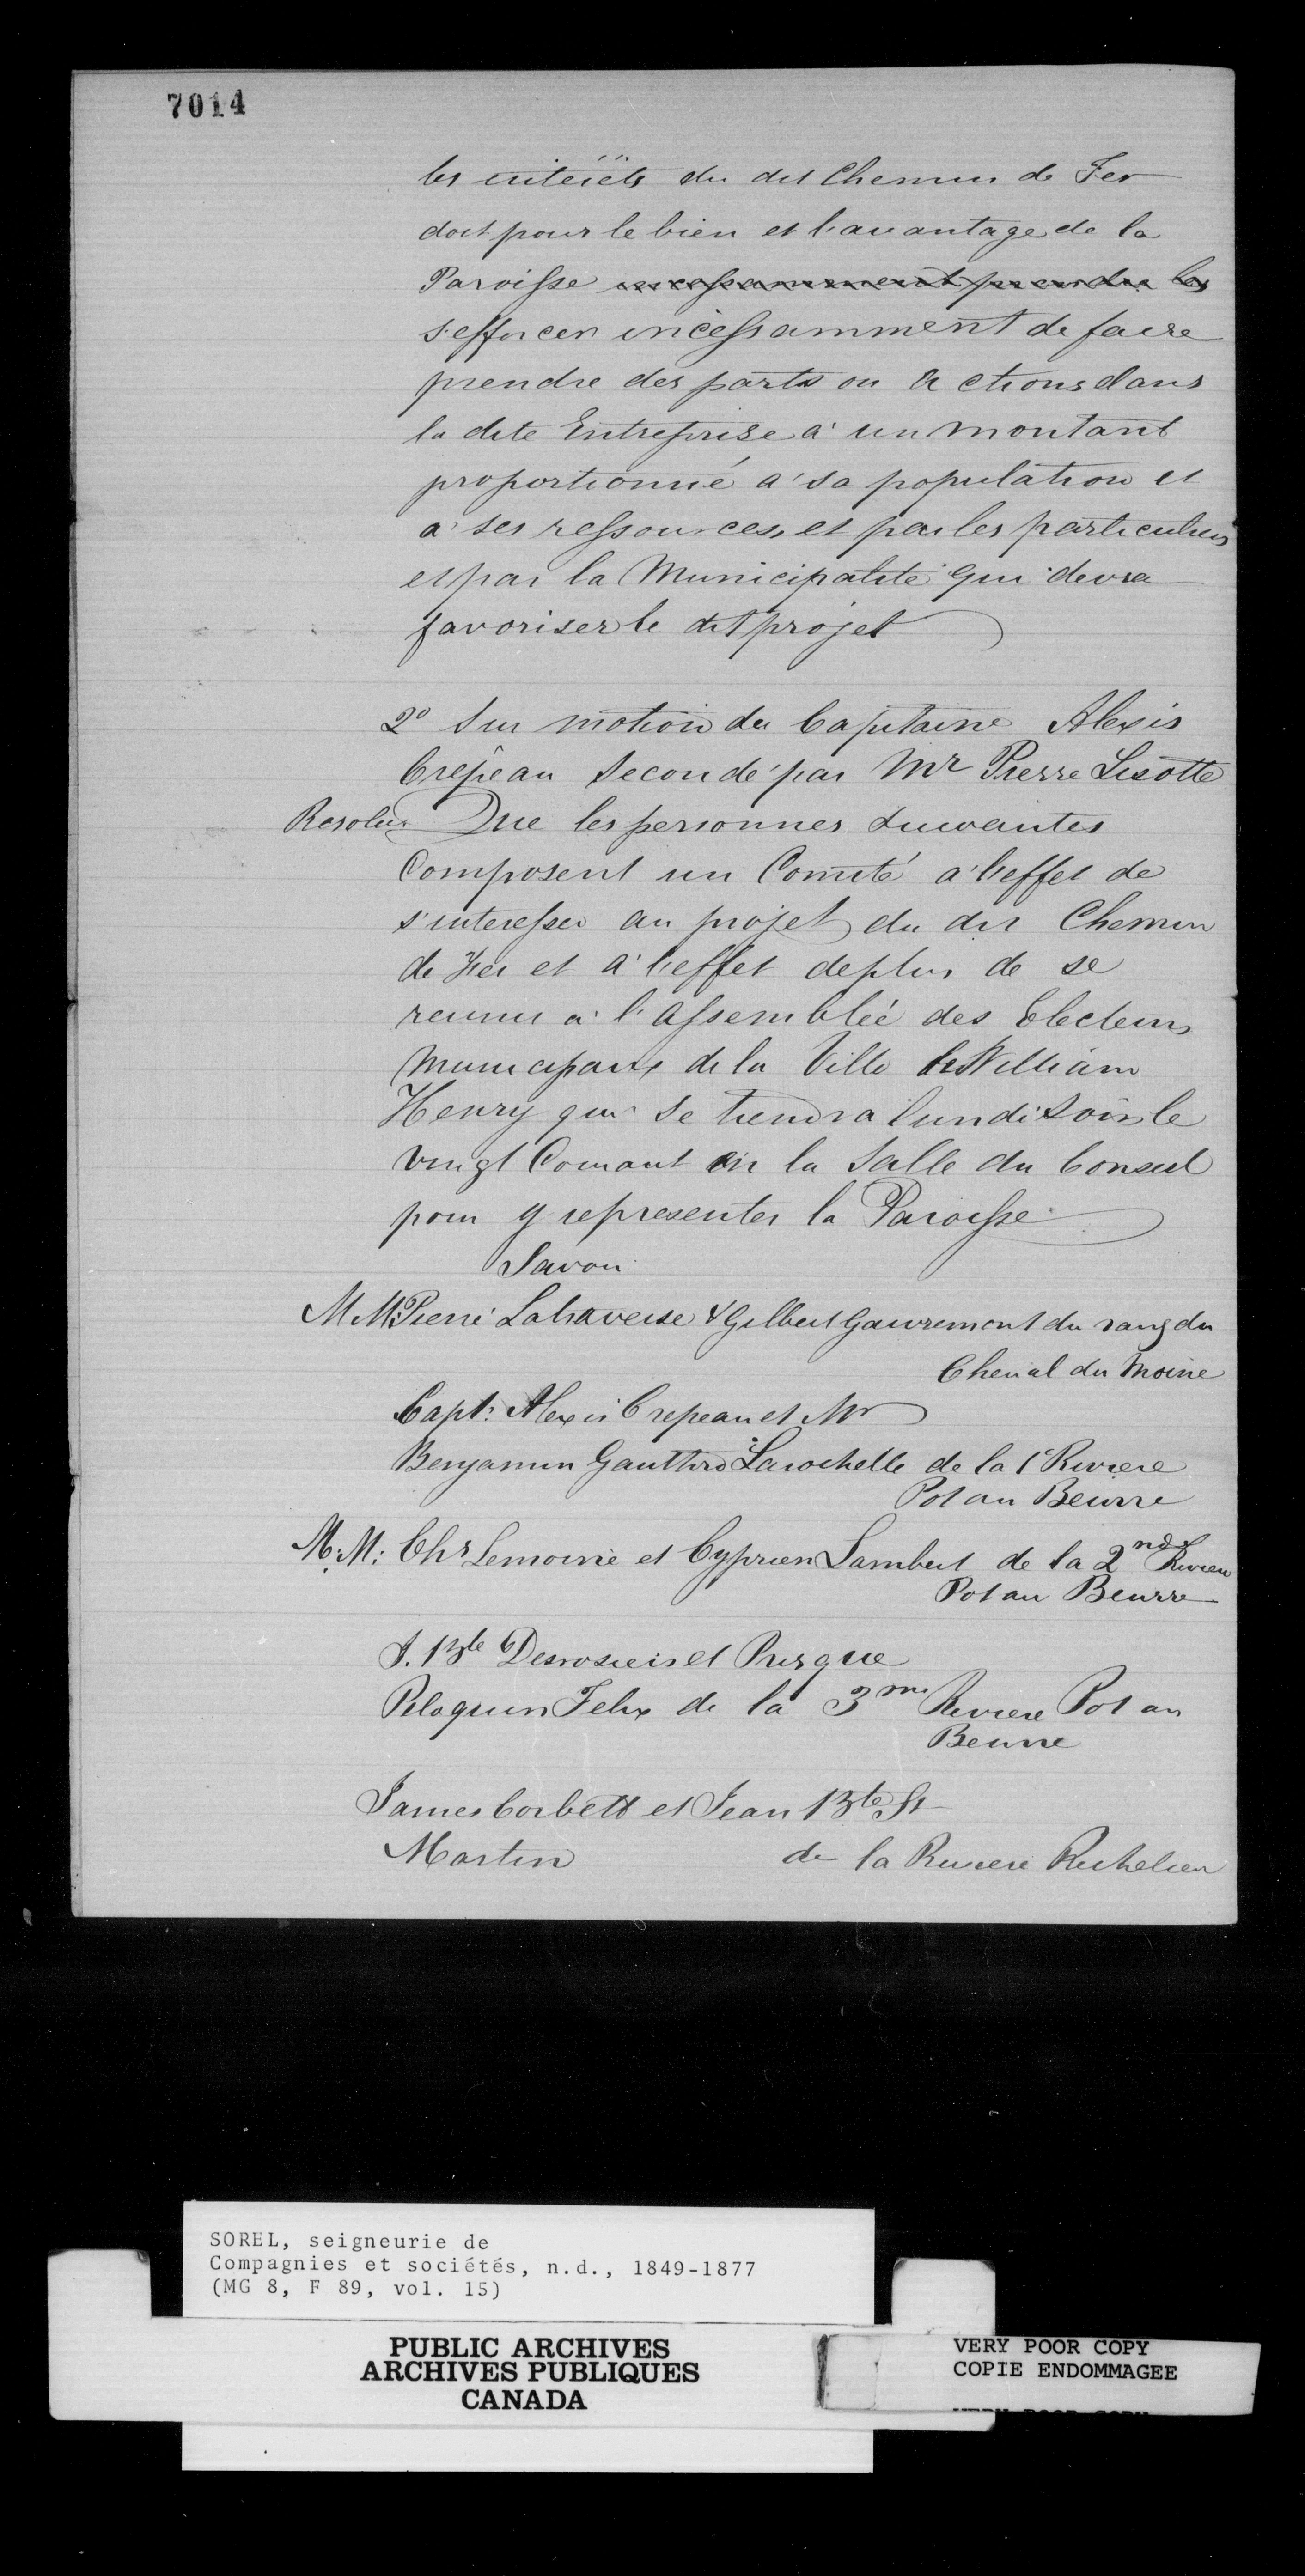 7014
les intérêts du dit Chemin de Fer
doit pour le bien et l'avantage de la
Paroisse incessamment prendre les
s'efforcer incessamment de faire
prendre des parts ou Actions dans
la dite Entreprise à un montant
proportionné à sa population et
à ses ressources, et par les particuliers
et par la Municipalité qui devra
favoriser le dit projet
2o Sur motion du Capitaine Alexis
Crepeau Secondé par Mr Pierre Lisotte
Resolu Que les personnes suivantes
Composent un Comité à l'effet de
s'interesser au projet du dit Chemin
de Fer et à l'effet deplus de se
reunir à l'Assemblée des Electeurs
Municipaux de la Ville de William
Henry qui se tiendra lundi soir le
vingt Courant en la Salle du Conseil
pour y representer la Paroisse
Savoir
M M. Pierre Latraverse & Gilbert Gauvremont du rang du
Chenal du Moine
Capt: Alexis Crepeau et Mr
Benjamin Gauthier Larochelle de la 1e Riviere
Pot au Beurre
M: M: Chs Lemoine et Cyprien Lambert de la 2nde Riviere
Pot au Beurre
J. Bte Desrosiers et Prisque
Peloquin Felix de la 3me Riviere Pot au
Beurre
James Corbett et Jean Bte St
Martin de la Riviere Richelieu
SOREL, seigneurie de
Compagnies et sociétés, n.d., 1849-1877
(MG 8, F 89, vol. 15)
PUBLIC ARCHIVES
ARCHIVES PUBLIQUES
CANADA
VERY POOR COPY
COPIE ENDOMMAGEE
VERY POOR COPY